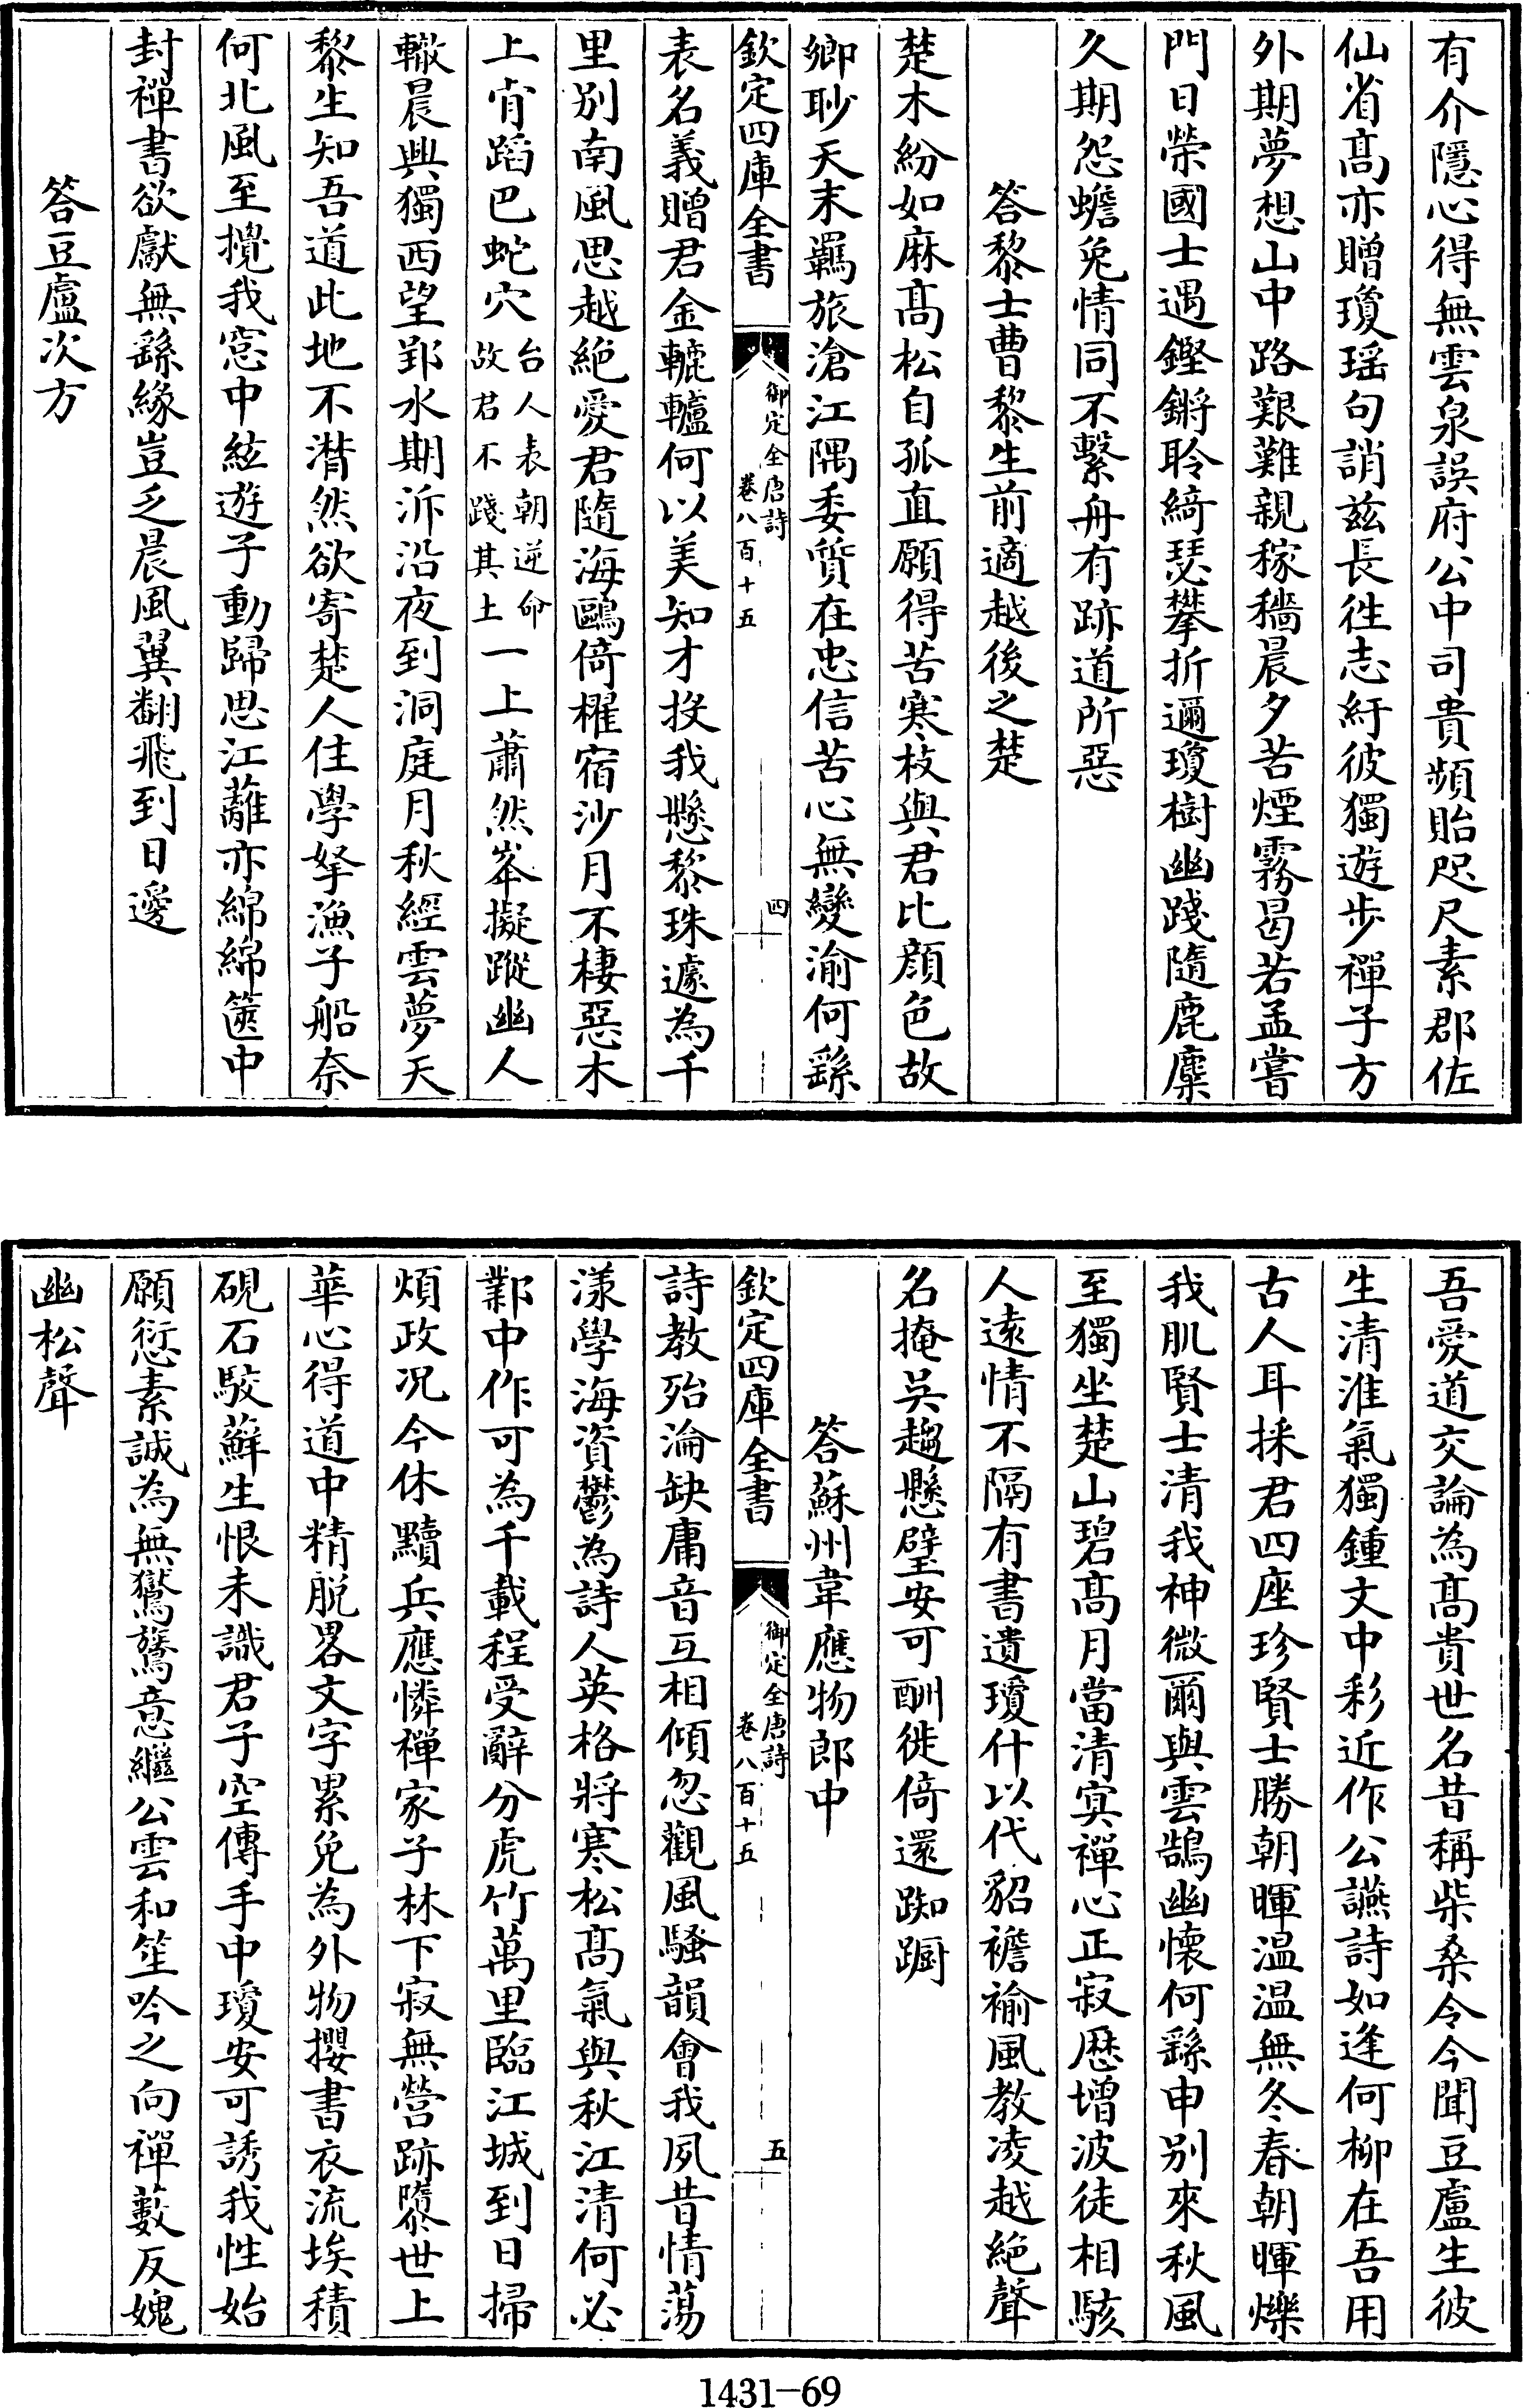 有介隱心得無雲泉誤府公中司貴頻貽咫尺素郡佐
仙省髙亦贈瓊瑶句誚兹長徃志紆彼獨遊步禪子方
外期夢想山中路艱難親稼穡晨夕苦煙霧曷若孟嘗
門日榮國士遇鏗鏘聆綺瑟攀折邇瓊樹幽踐隨鹿麋
久期怨蟾兔情同不繫舟有跡道所惡
答黎士曹黎生前適越後之楚
楚木紛如麻髙松自孤直願得苦寒枝與君比顔色故
卿眇天末羈旅滄江隅委質在忠信苦心無變渝何繇
欽定四庫全書
御定全唐詩
卷八百十五
四
表名義贈君金轆轤何以美知才投我懸黎珠遽為千
里别南風思越絶愛君隨海鷗倚櫂宿沙月不棲惡木
上肯蹈巴蛇穴
台人表朝逆命
故君不踐其土
一上蕭然峯擬蹤幽人
轍晨興獨西望郢水期泝沿夜到洞庭月秋經雲夢天
黎生知吾道此地不潸然欲寄楚人住學拏漁子船奈
何北風至攪我窓中絃遊子動歸思江蘺亦綿綿篋中
封禪書欲獻無繇緣豈乏晨風翼翻飛到日邊
答豆盧次方
吾愛道交論為髙貴世名昔稱柴桑令今聞豆盧生彼
生清淮氣獨鍾文中彩近作公讌詩如逢何柳在吾用
古人耳採君四座珍賢士勝朝暉温温無冬春朝暉爍
我肌賢士清我神微爾與雲鵠幽懷何繇申别來秋風
至獨坐楚山碧髙月當清冥禪心正寂歴增波徒相駭
人遠情不隔有書遺瓊什以代貂襜褕風教凌越絶聲
名掩吳趨懸璧安可酬徙倚還踟蹰
答蘇州韋應物郎中
欽定四庫全書
御定全唐詩
卷八百十五
五
詩教殆淪缺庸音互相傾忽觀風騷韻會我夙昔情蕩
漾學海資鬱為詩人英格將寒松髙氣與秋江清何必
鄴中作可為千載程受辭分虎竹萬里臨江城到日掃
煩政况今休黷兵應憐禪家子林下寂無營跡隳世上
華心得道中精脱畧文字累免為外物攖書衣流埃積
硯石駮蘚生恨未識君子空傳手中瓊安可誘我性始
願愆素誠為無鸑鷟意繼公雲和笙吟之向禪藪反媿
幽松聲
1431—69